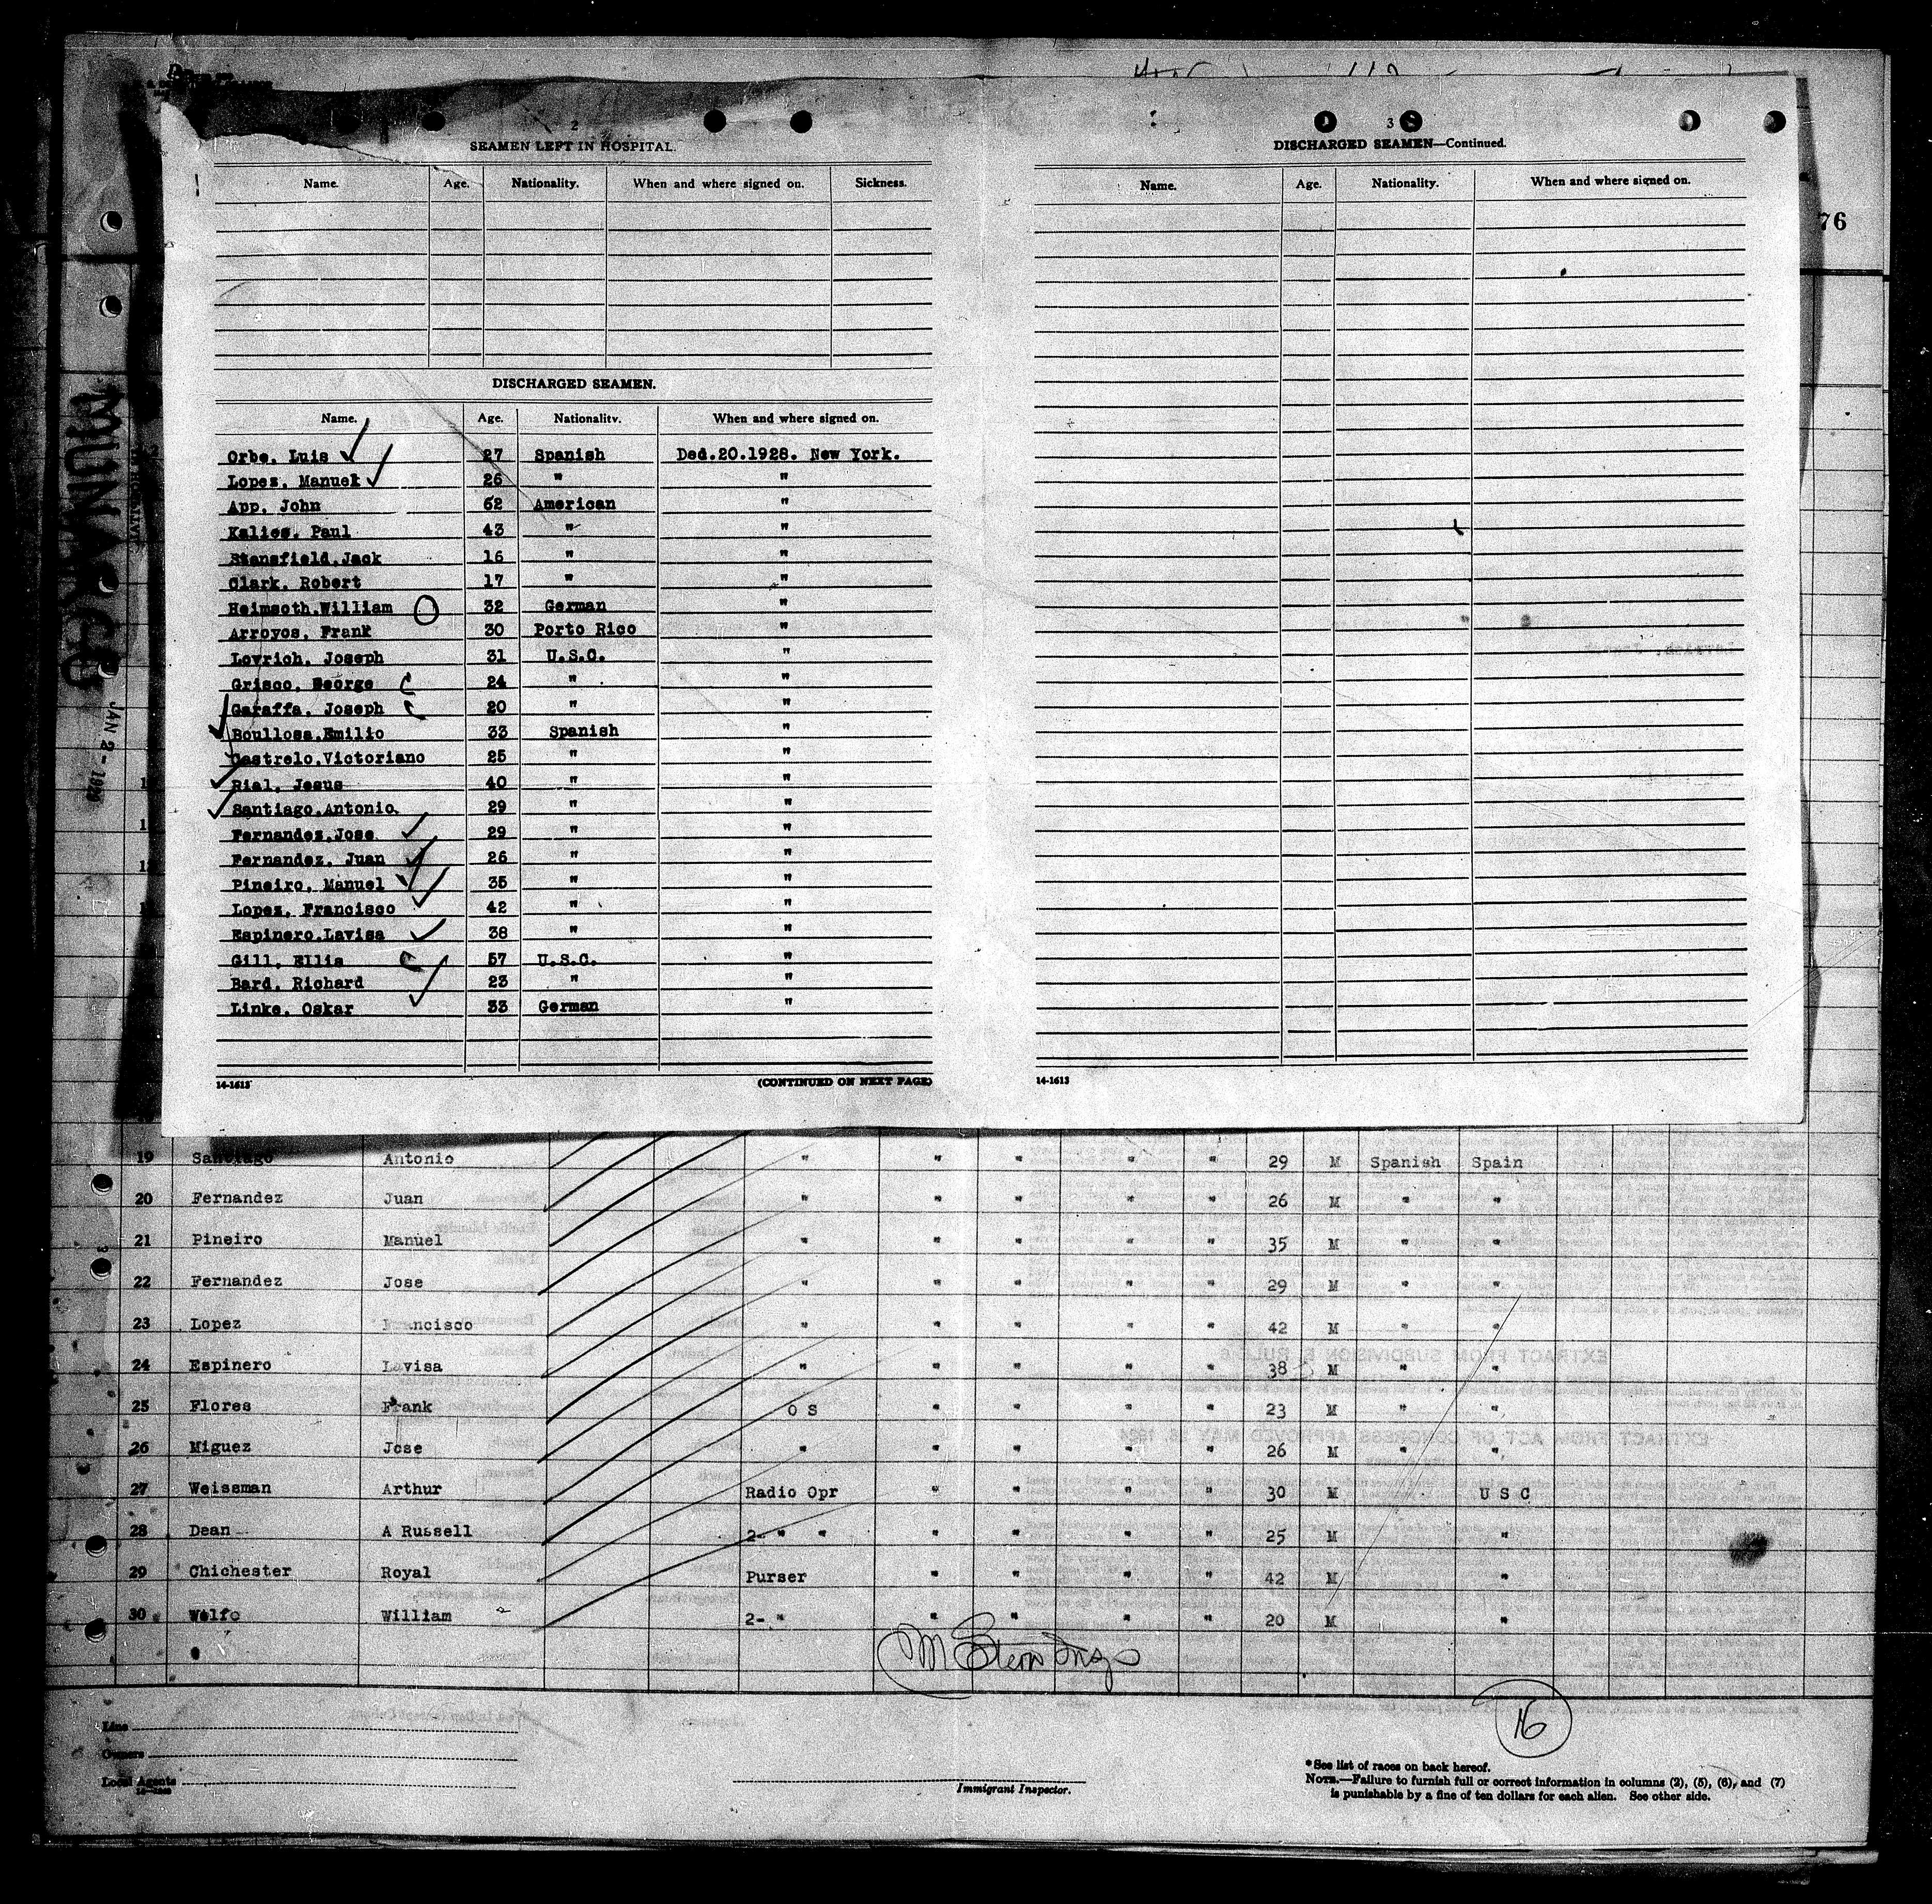 2
SEAMEN LEFT IN HOSPITAL.
Name. Age. Nationality. When and where signed on. Sickness.
DISCHARGED SEAMEN.
Name. Age. Nationality. When and where signed on.
Orbe, Luis 27 Spanish Ded.20.1928. New York.
Lopez, Manuel 26 " "
App, John 62 American "
Kalies, Paul 43 " "
Stansfield,Jack 16 " "
Clark, Robert 17 " "
Heimsoth,William 32 German "
Arroyos, Frank 30 Porto Rico "
Lovrich, Joseph 31 U.S.C. "
Grisco, George 24 " "
Garaffa, Joseph 20 " "
Boullosa,Emilio 33 Spanish "
Castrelo,Victoriano 25 " "
Rial, Jesus 40 " "
Santiago,Antonio 29 " "
Fernandez,Jose 29 " "
Fernandez, Juan 26 " "
Pineiro, Manuel 35 " "
Lopez, Francisco 42 " "
Espinero,Lavisa 38 " "
Gill, Ellis 57 U.S.C. "
Bard, Richard 23 " "
Linke, Oskar 33 German "
14-1613 (CONTINUED ON NEXT PAGE)
3
DISCHARGED SEAMEN—Continued.
Name. Age. Nationality. When and where signed on.
14-1613
76
MUNARGO
JAN 2 - 1929
19 Santiago Antonio " " " " " 29 M Spanish Spain
20 Fernandez Juan " " " " " 26 M " "
21 Pineiro Manuel " " " " " 35 M " "
22 Fernandez Jose " " " " " 29 M " "
23 Lopez Francisco " " " " " 42 M " "
24 Espinero Lavisa " " " " " 38 M " "
25 Flores Frank O S " " " " 23 M " "
26 Miguez Jose " " " " " 26 M " "
27 Weissman Arthur Radio Opr " " " " 30 M U S C
28 Dean A Russell 2- " " " " " " 25 M "
29 Chichester Royal Purser " " " " 42 M "
30 Wolfe William 2- " " " " " 20 M "
Line
Owners
Local Agents
Immigrant Inspector.
16
*See list of races on back hereof.
NOTE.—Failure to furnish full or correct information in columns (2), (5), (6), and (7)
is punishable by a fine of ten dollars for each alien. See other side.